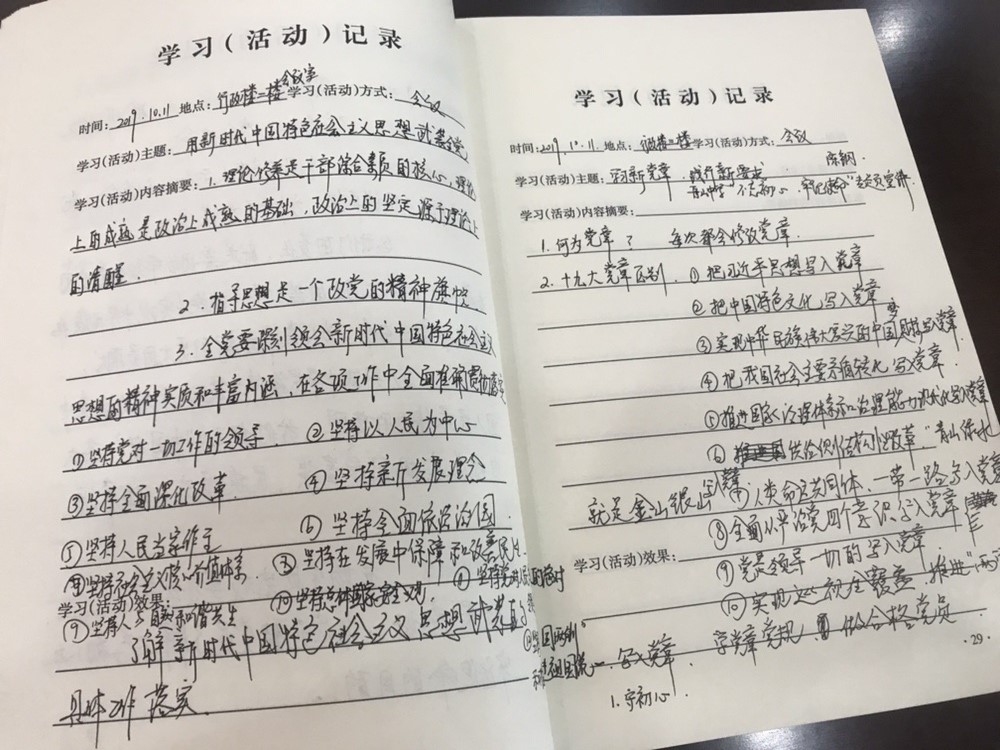 学习(活动)记录
时间: 2019.10.11 地点: 行政楼二楼会议室 学习(活动)方式: 会议
学习(活动)主题: 用新时代中国特色社会主义思想武装全党
学习(活动)内容摘要: 1. 理论修养是干部综合素质的核心, 理论
上的成熟是政治上成熟的基础, 政治上的坚定源于理论上
的清醒.
2. 指导思想是一个政党的精神旗帜
3. 全党要深刻领会新时代中国特色社会主义
思想的精神实质和丰富内涵, 在各项工作中全面准确贯彻落实
①坚持党对一切工作的领导 ②坚持以人民为中心
③坚持全面深化改革. ④坚持新发展理念
⑤坚持人民当家作主 ⑥坚持全面依法治国.
⑦坚持社会主义核心价值体系. ⑧坚持在发展中保障和改善民生.
⑨坚持人与自然和谐共生 ⑩坚持总体国家安全观. ⑪坚持党对人民的绝对
学习(活动)效果:
了解新时代中国特色社会主义思想武装的
具体工作落实.
学习(活动)记录
时间: 2019.10.11. 地点: 行政楼二楼 学习(活动)方式: 会议
学习(活动)主题: 学习新党章, 践行新要求
不忘初心、牢记使命"
学习(活动)内容摘要:
1. 何为党章? 每次都会修改党章.
2. 十九大党章区别. ①把习近平思想写入党章
②把中国特色文化写入党章
③实现中华民族伟大复兴的中国梦写入党章
④把我国社会主要矛盾转化写入党章.
⑤推进国家治理体系和治理能力现代化写入党章
⑥供给侧结构性改革"青山绿水
就是金山银山"写入党章 ⑦人类命运共同体、一带一路写入党章
⑧全面从严治党四个意识写入党章
学习(活动)效果: ⑨党是领导一切的写入党章
⑩实现巡视全覆盖, 推进"两
写入党章. 学党章党规 做合格党员
1. 守初心.
·29·